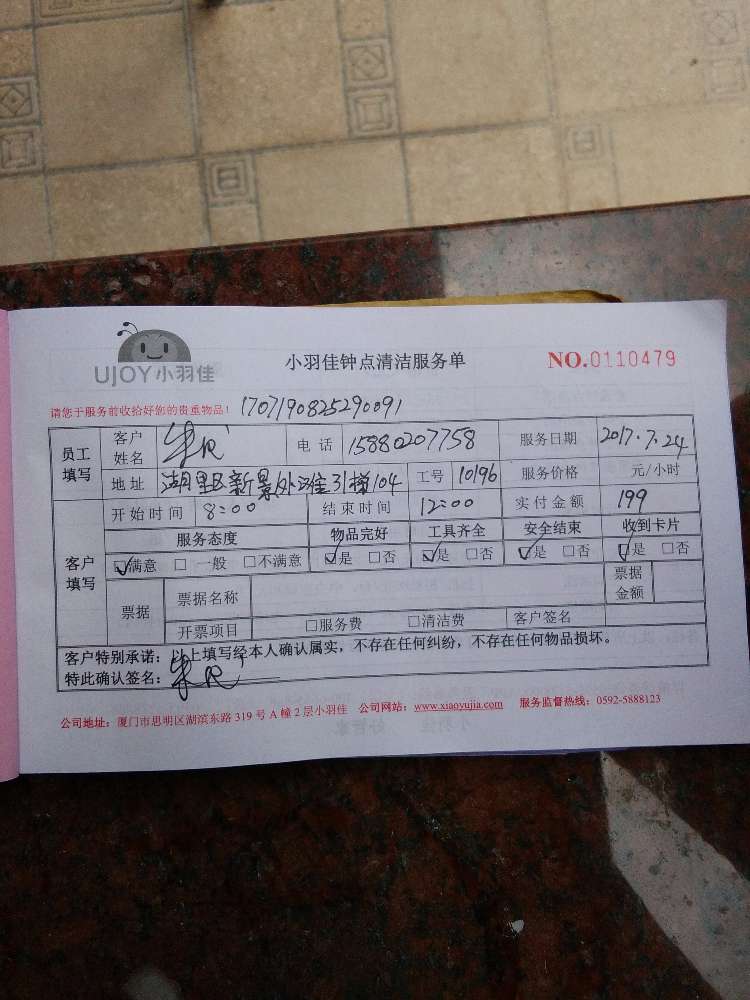 UJOY小羽佳
小羽佳钟点清洁服务单
NO.0110479
请您于服务前收拾好您的贵重物品！ 1707190825290091
员工填写 客户姓名 朱 电话 15880207758 服务日期 2017.7.24
地址 湖里区新景外滩31梯104 工号 10196 服务价格 元/小时
客户填写 开始时间 8:00 结束时间 12:00 实付金额 199
服务态度 物品完好 工具齐全 安全结束 收到卡片
☑满意 □ 一般 □不满意 ☑是 □否 ☑是 □否 ☑是 □否 ☑是 □否
票据 票据名称 票据金额
开票项目 □服务费 □清洁费 客户签名
客户特别承诺：以上填写经本人确认属实，不存在任何纠纷，不存在任何物品损坏。
特此确认签名： 朱
公司地址：厦门市思明区湖滨东路 319 号 A 幢 2 层小羽佳 公司网站：www.xiaoyujia.com 服务监督热线：0592-5888123